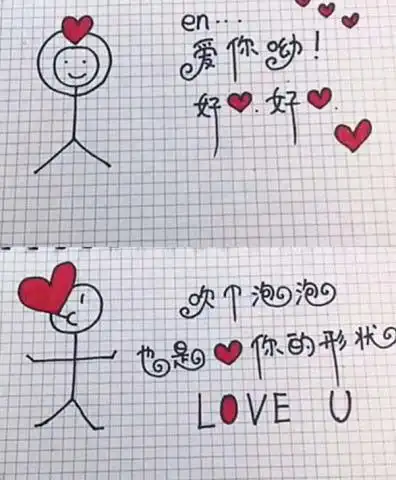 en...
爱你呦！
好❤.好❤.
吹个泡泡
也是❤你的形状
LOVE U